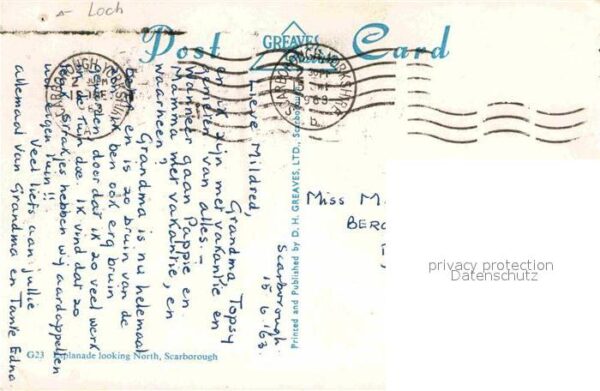 Loch
Post Card
GREAVES
SCARBOROUGH YORKSHIRE
Scarborough
15.6.'63.
Lieve Mildred,
Grandma, Topsy
en ik zijn met vakantie en
genieten van alles. –
Wanneer gaan Pappie en
Mamma met vakantie, en
waarheen?
Grandma is nu helemaal
beter en is zo bruin van de
zon. Ik ben ook erg bruin
geworden doordat ik zo veel werk
in de tuin doe. Ik vind dat zo
leuk. Straks hebben wij aardappelen
uit eigen tuin!!
Veel liefs aan jullie
allemaal van Grandma en Tante Edna
Miss M
BERG
Printed and Published by D. H. GREAVES, LTD., Scarborough
G23 Esplanade looking North, Scarborough
privacy protection
Datenschutz